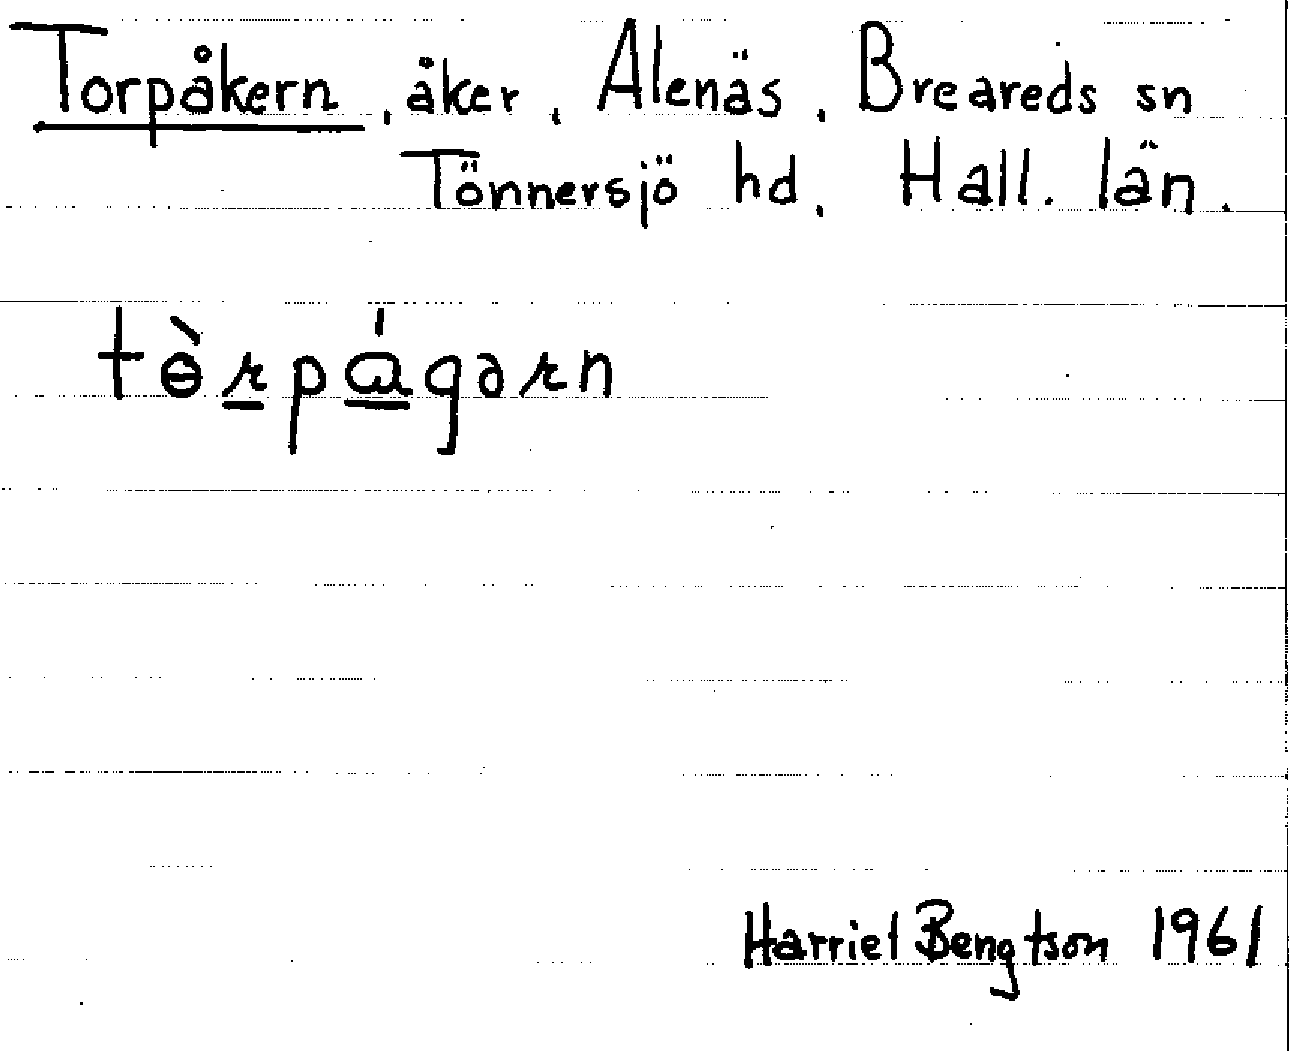 Torpåkern, åker, Alenäs, Breareds sn
Tönnersjö hd, Hall. län.
tɵ̀rpágərn
Harriet Bengtson 1961